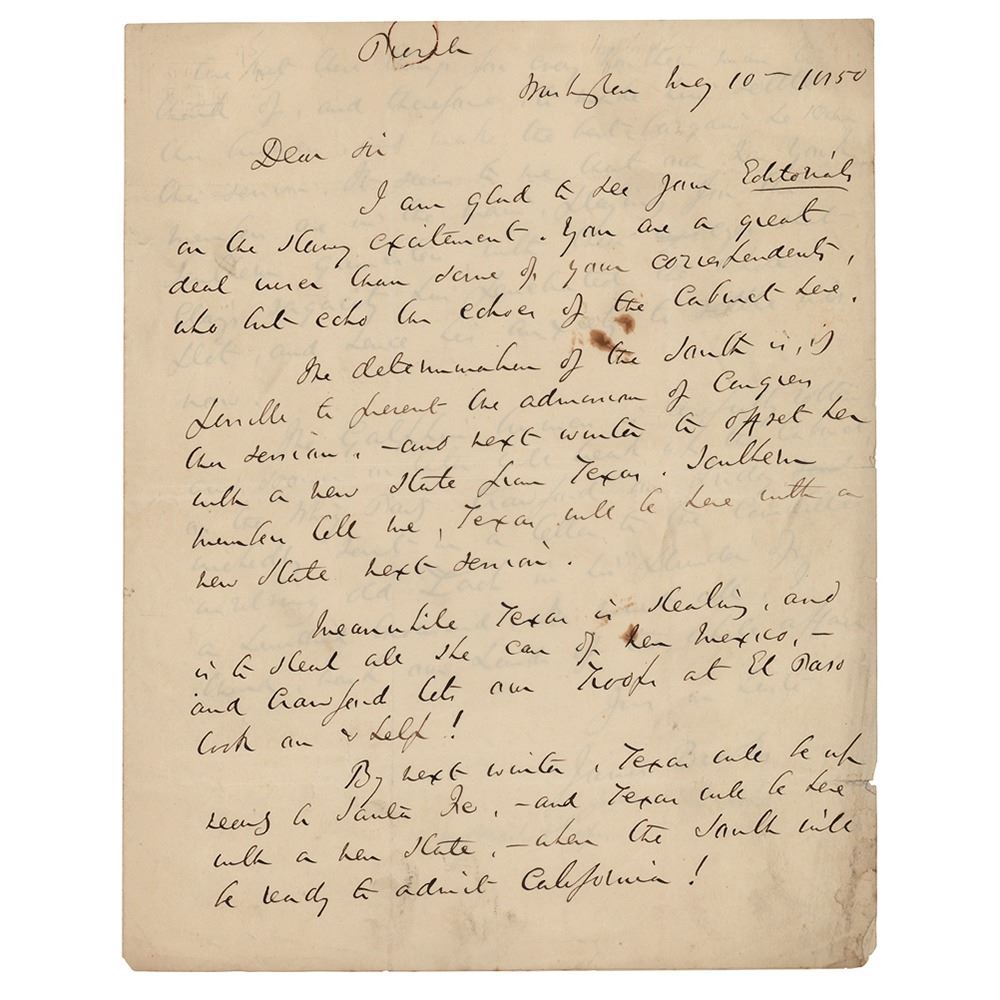 Private
Washington May 10 – 1850
Dear Sir
I am glad to see your Editorials
on the slavery excitement. You are a great
deal wiser than some of your correspondents,
who but echo the echoes of the Cabinet here.
The determination of the South is, if
possible to prevent the admission of
this session, – and next winter to offset her
with a new State from Texas. Southern
members tell me, Texas will be here with a
new State next session.
Meanwhile Texas is stealing, and
is to steal all she can of New Mexico, –
and Crawford lets our Troops at El Paso
look on & help!
By next winter, Texas will be up
to Santa Fe, – and Texas will be here
with a new State, – when the South will
be ready to admit California!